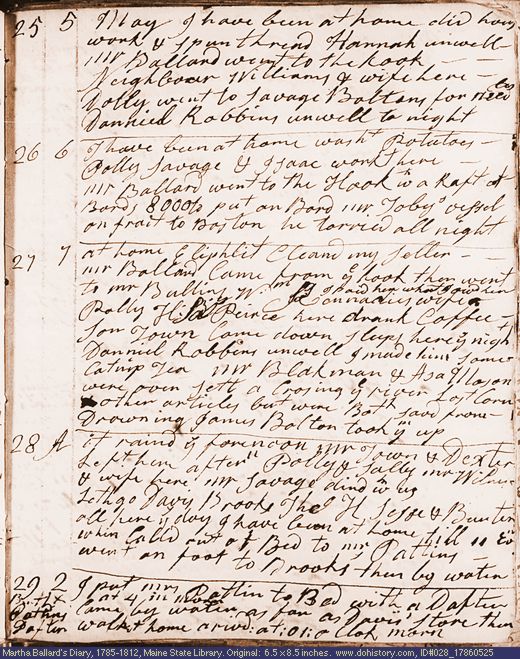 25 5 May I have been at home did hous
work & Spun thread Hannah unwell
mr Ballard went to the hook
Neighbour Williams & wife here
Dolly went to Savage Boltons for
Danniel Robbins unwell to night
26 6 I have been at home washt Potatoes
Polly Savage & Isaac work here
mr Ballard went to the Hook wth a Raft of
Bords 8000 put on Bord mr Tobys vessel
on frait to Boston he tarried all night
27 7 at home Eliphlit Cleand my Seller
mr Ballard Came from ye hook then went
to mr Bullins Wm
Polly & Pierce here drank Coffee
Son Town Came down sleeps here ye night
Danniel Robbins unwell I made him some
Catnip Tea mr Blakman & Asa Mason
were over sett a Crosing ye river Lost Corn
& other articles but were Both savd from
Drowning James Bolton took ym up
28 A it raind ye forenoon mr Town & Dexter
Left here after Polly & Sally mr
& wife here mr Savage dind wth us
Lithgo Davy Brooks The H Jesse & Bunten
all here ye day I have been at home till 11 Evn
when Calld out of Bed to mr Pattins
went on foot to Brooks then by water
29 2 I put mrs Pattin to Bed with a Dafter
at 4 in morn
Came by water as far as Davis Store then
walkt home arivd at 01 o Clok morn
Birth
Pattins
Dafter
Martha Ballard's Diary, 1785-1812, Maine State Library. Original: 6.5 x 8.5 inches. www.dohistory.com, ID#028_17860525